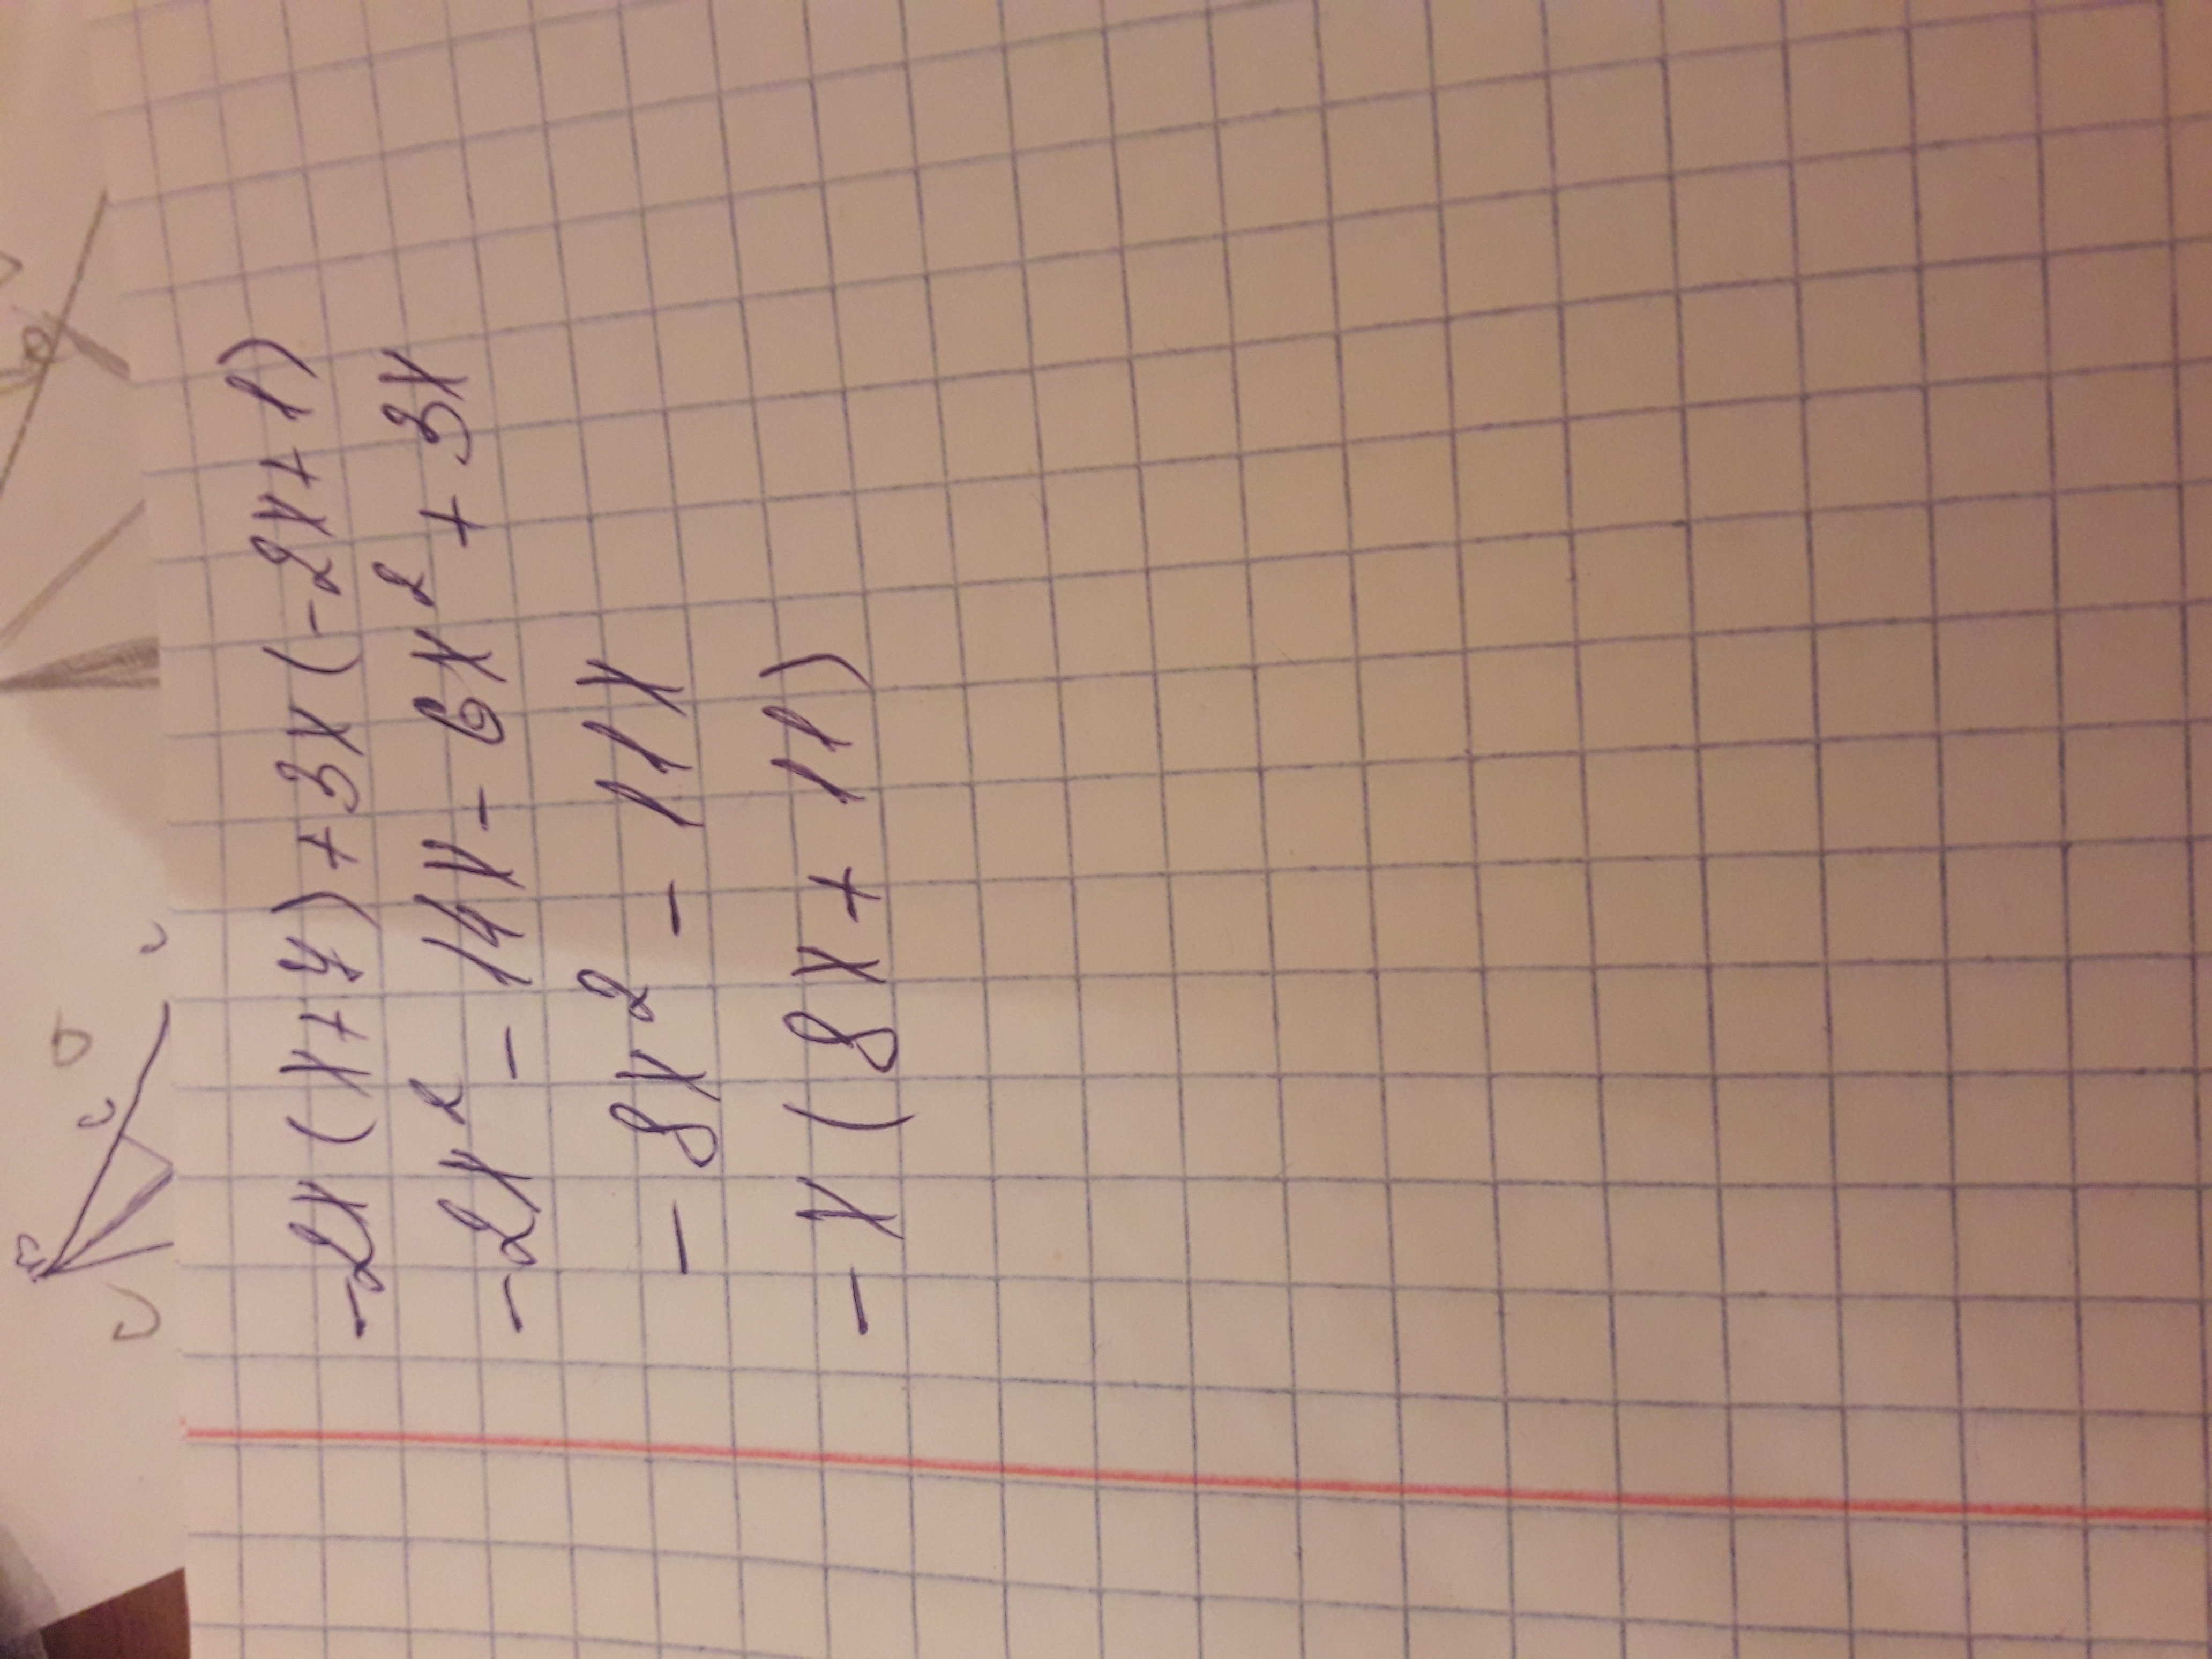 -2x(x+7)+3x(-2x+1)
-2x² - 14x - 6x² + 3x
- 8x² - 11x
- x(8x + 11)